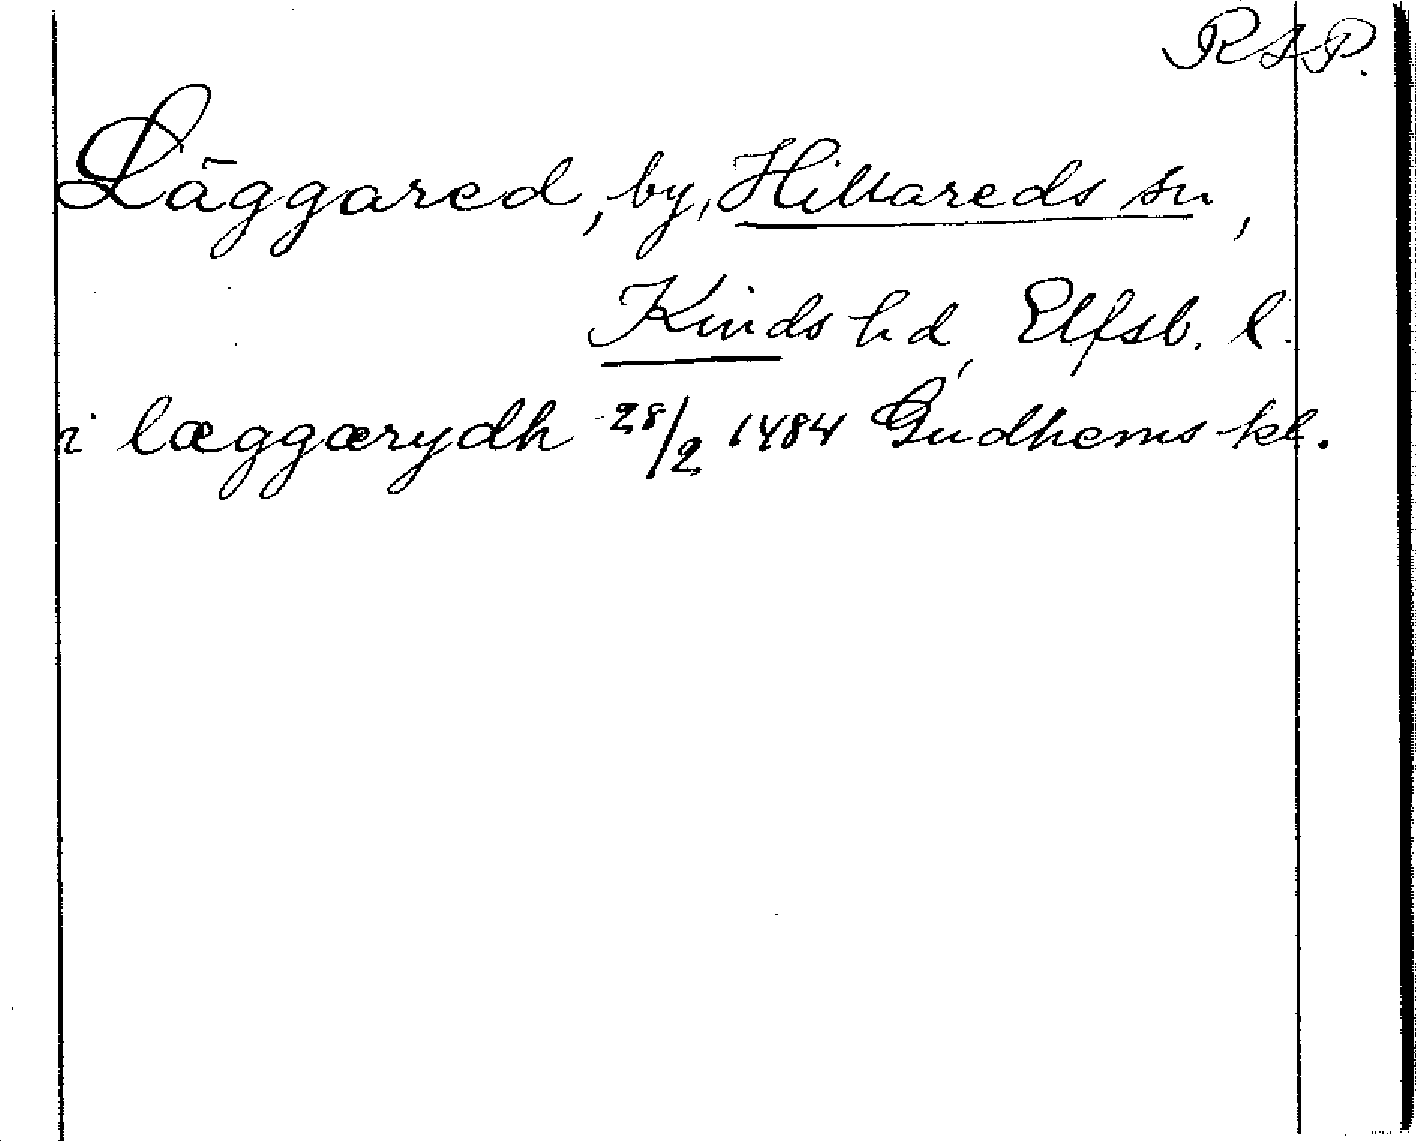 RAP.
Läggared, by, Hillareds sn,
Kinds hd, Elfsb. l.
i læggærydh 28/2 1484 Gudhems kl.